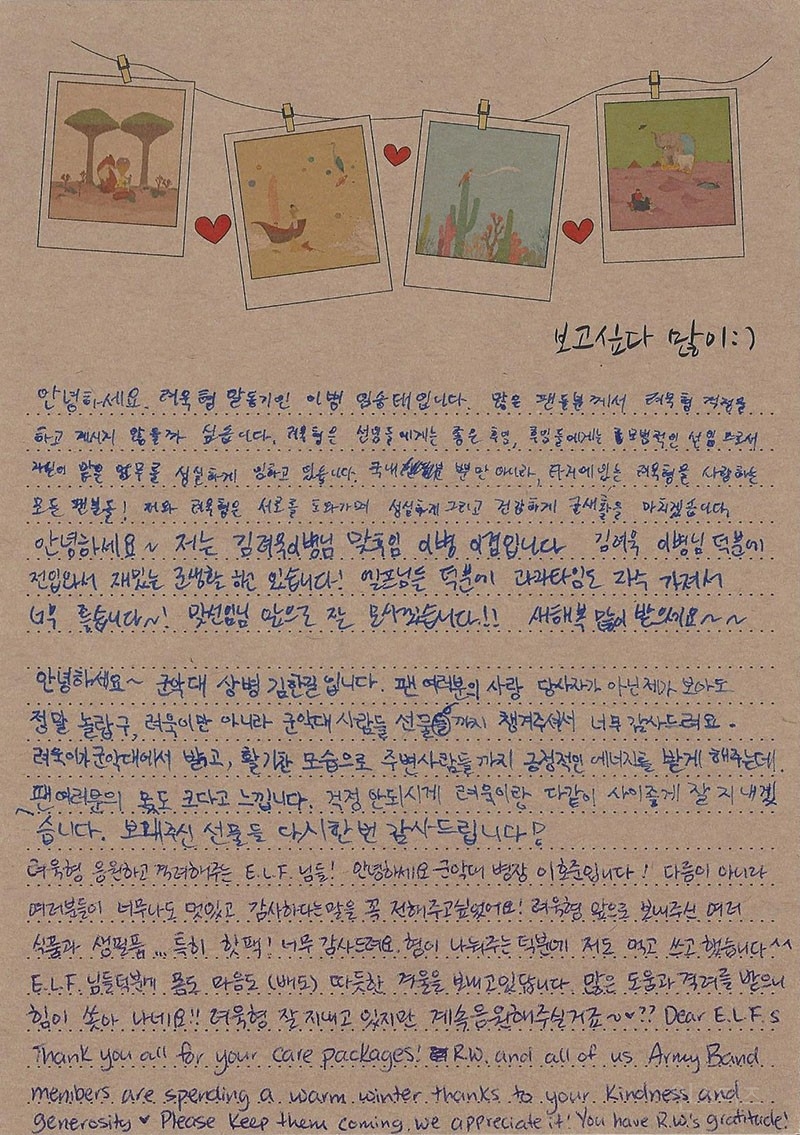 보고싶다 많이:)
안녕하세요. 려욱형 맏동기인 이병 임승태입니다. 많은 팬들분께서 려욱형 걱정을
하고 계시지 않을까 싶습니다. 려욱형은 선임들에게는 좋은 후임, 후임들에게는 모범적인 선임으로서
자신이 맡은 업무를 성실하게 임하고 있습니다. 국내 뿐만 아니라, 타지에 있는 려욱형을 사랑하는
모든 팬분들! 저와 려욱형은 서로를 도와가며 성실하게 그리고 건강하게 군생활을 마치겠습니다.
안녕하세요~ 저는 김려욱이병님 맞후임 이병 이겸입니다 김여욱 이병님 덕분에
전입와서 재밌는 군생활 하고 있습니다! 엘프님들 덕분에 과자타임도 자주 가져서
너무 좋습니다~! 맞선임님 앞으로 잘 모시겠습니다!! 새해복 많이 받으세요~~
안녕하세요~ 군악대 상병 김한길입니다. 팬 여러분의 사랑 당사자가 아닌제가 보아도
정말 놀랍구, 려욱이만 아니라 군악대 사람들 선물까지 챙겨주셔서 너무 감사드려요.
려욱이가 군악대에서 밝고, 활기찬 모습으로 주변사람들까지 긍정적인 에너지를 받게 해주는데
팬여러분의 몫도 크다고 느낍니다. 걱정 안되시게 려욱이랑 다같이 사이좋게 잘 지내겠
습니다. 보내주신 선물들 다시한번 감사드립니다!
려욱형 응원하고 격려해주는 E.L.F.님들! 안녕하세요 군악대 병장 이호준입니다! 다름이 아니라
여러분들이 너무나도 멋있고 감사하다는말을 꼭 전해주고싶었어요! 려욱형 앞으로 보내주신 여러
식품과 생필품... 특히 핫팩! 너무 감사드려요. 형이 나눠주는 덕분에 저도 먹고 쓰고 했습니다^^
E.L.F.님들덕분에 몸도 마음도 (배도) 따듯한 겨울을 보내고있답니다. 많은 도움과 격려를 받으니
힘이 솟아 나네요!! 려욱형 잘 지내고 있지만 계속응원해주실거죠~♥?? Dear E.L.F.s
Thank you all for your care packages! R.W. and all of us Army Band
members are spending a warm winter thanks to your kindness and
generosity ♥ Please keep them coming. we appreciate it! You have R.W.'s gratitude!